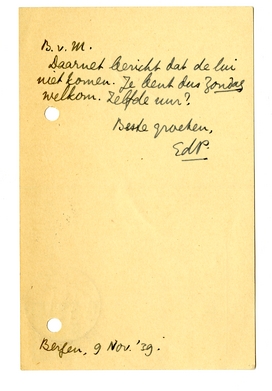 B. v. M.
Daarnet bericht dat de lui
niet komen. Je bent dus zondag
welkom. Zelfde uur?
Beste groeten,
EdP.
Bergen, 9 Nov. '39.